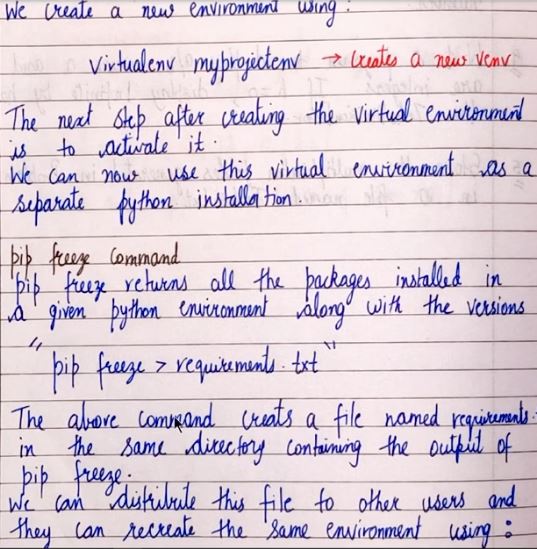 We create a new environment using:
virtualenv myprojectenv → Creates a new venv
The next step after creating the virtual environment
is to activate it.
We can now use this virtual environment as a
separate python installation.
pip freeze command
pip freeze returns all the packages installed in
a given python environment along with the versions
"pip freeze > requirements.txt"
The above command creats a file named requirements.
in the same directory containing the output of
pip freeze.
We can distribute this file to other users and
they can recreate the same environment using: